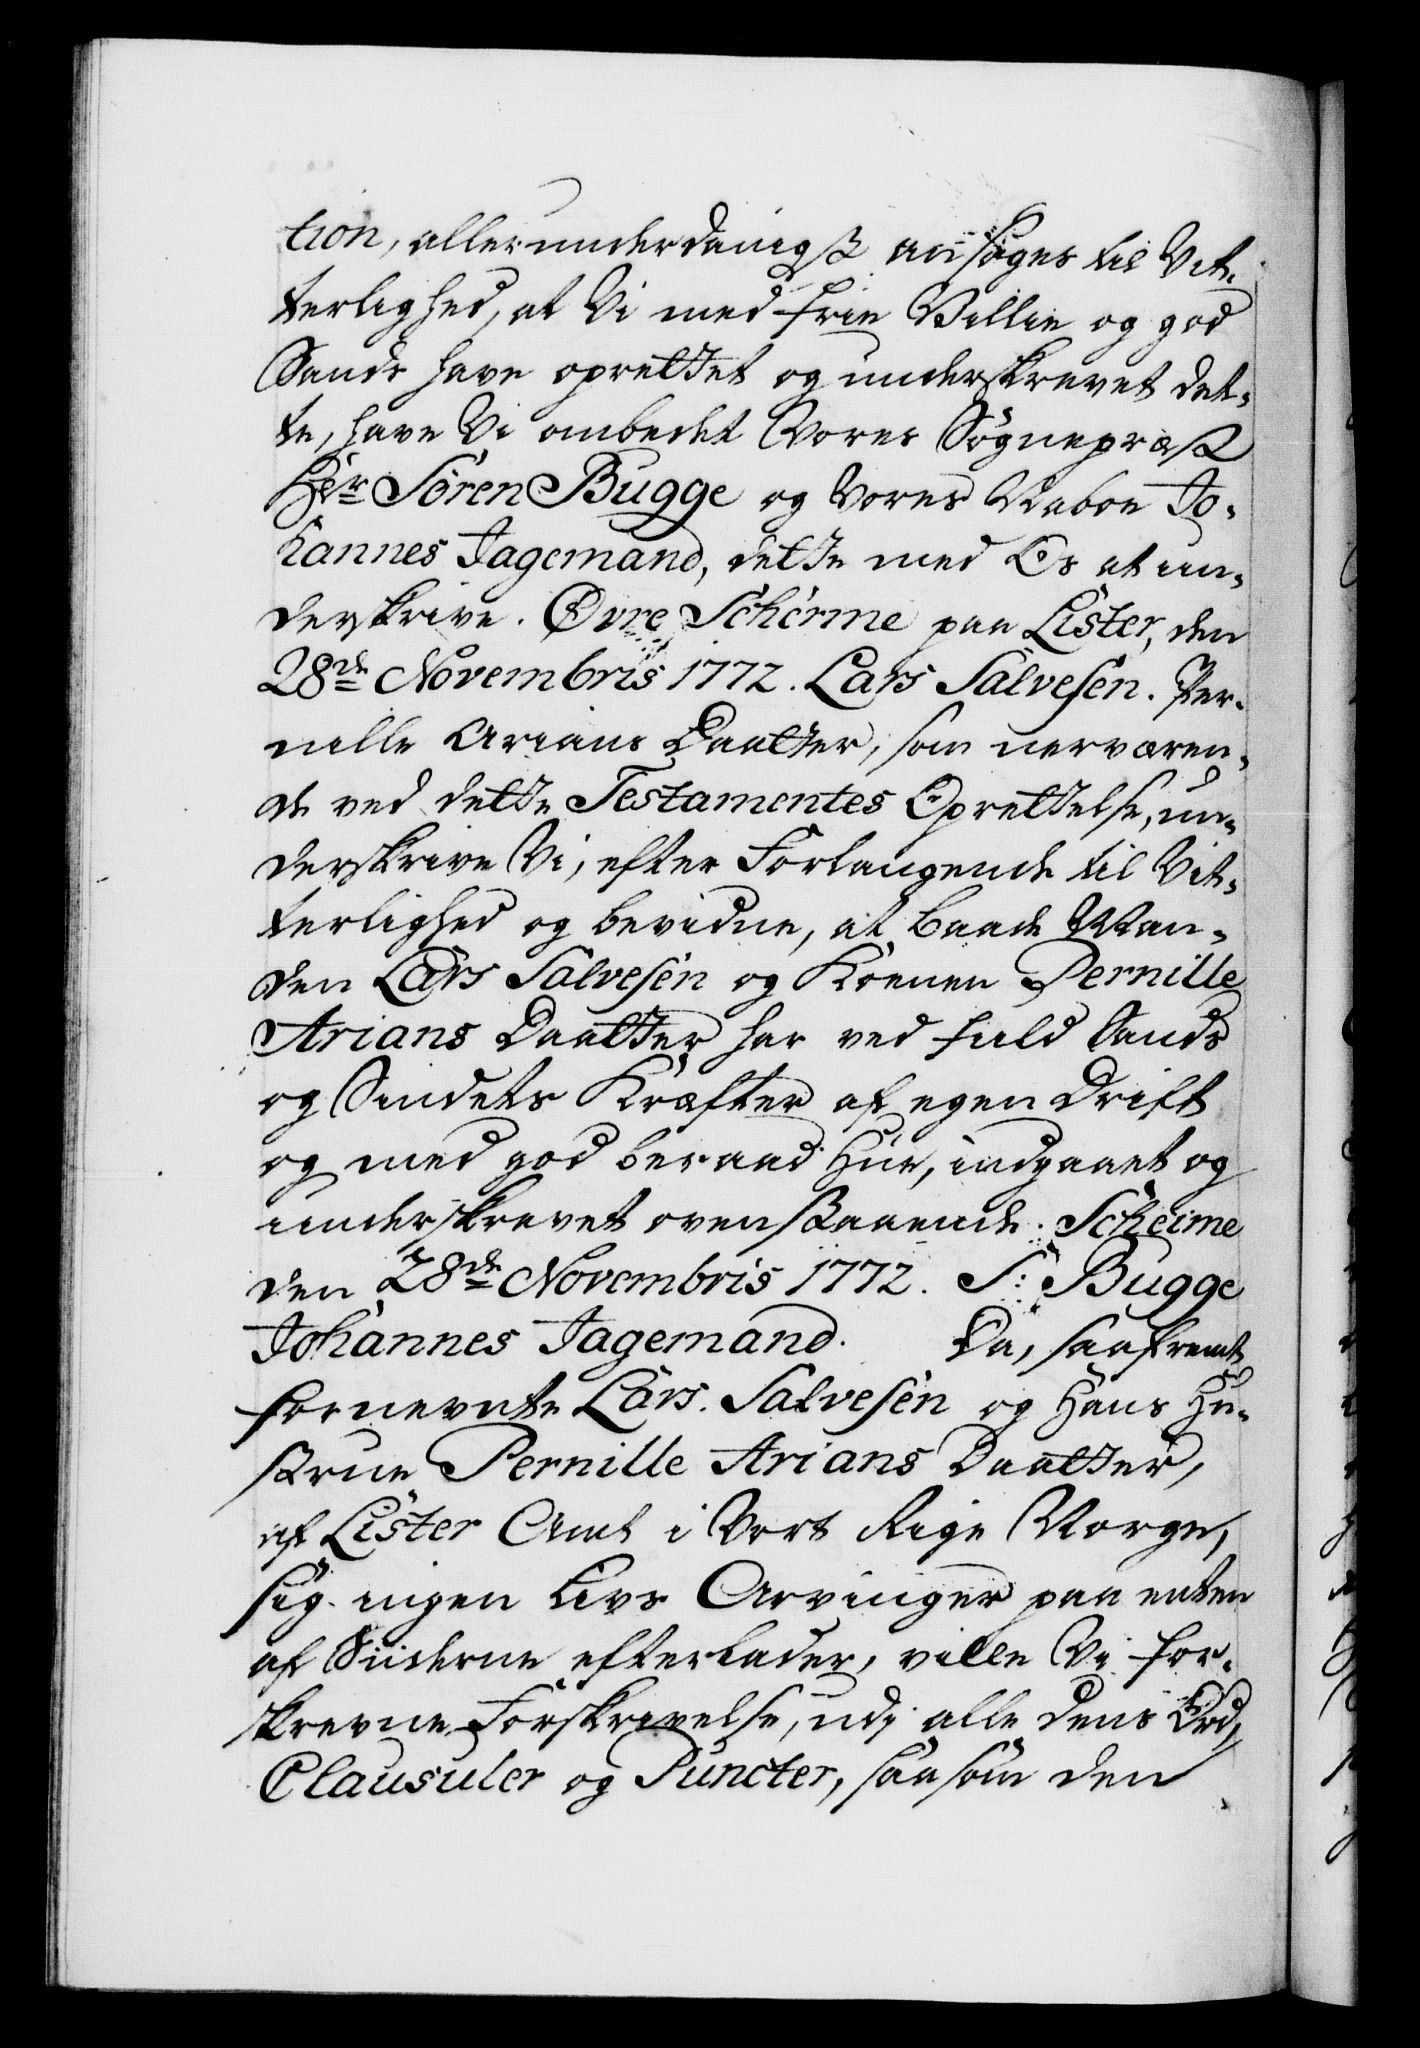 tion, allerunderdanigst ansøges til Vit-
terlighed, at Vi med frie Villie og god
Sands have oprettet og underskrevet det-
te, have Vi ombedet Vores Sognepræst
Hr Sören Bugge og Vores Naboe Jo-
hannes Jagemand, dette med Os at un-
derskrive. Øvre Scheime paa Lister, den
28de Novembris 1772. Lars Salvesen. Per-
nille Arians Daatter, som nerværen-
de ved dette Testamentes Oprettelse, un-
derskrive Vi, efter Forlangende til Vit-
terlighed og bevidne, at baade Man-
den Lars Salvesen og Konen Pernille
Arians Daatter har ved fuld Sands
og Sindets Kræfter af egen Drift
og med god beraad Hue, indgaaet og
underskrevet ovenstaaende. Scheime
den 28de Novembris 1772. S: Bugge
Johannes Jagemand. Da, saafremt
fornevnte Lars Salvesen og Hans Hu-
strue Pernille Arians Daatter,
af Lister Amt i Vort Rige Norge,
sig ingen Livs Arvinger paa enten
af Siiderne efterlader, ville Vi for-
skrevne Forskrivelse, udj alle dens Ord,
Clausuler og Puncter, saasom den